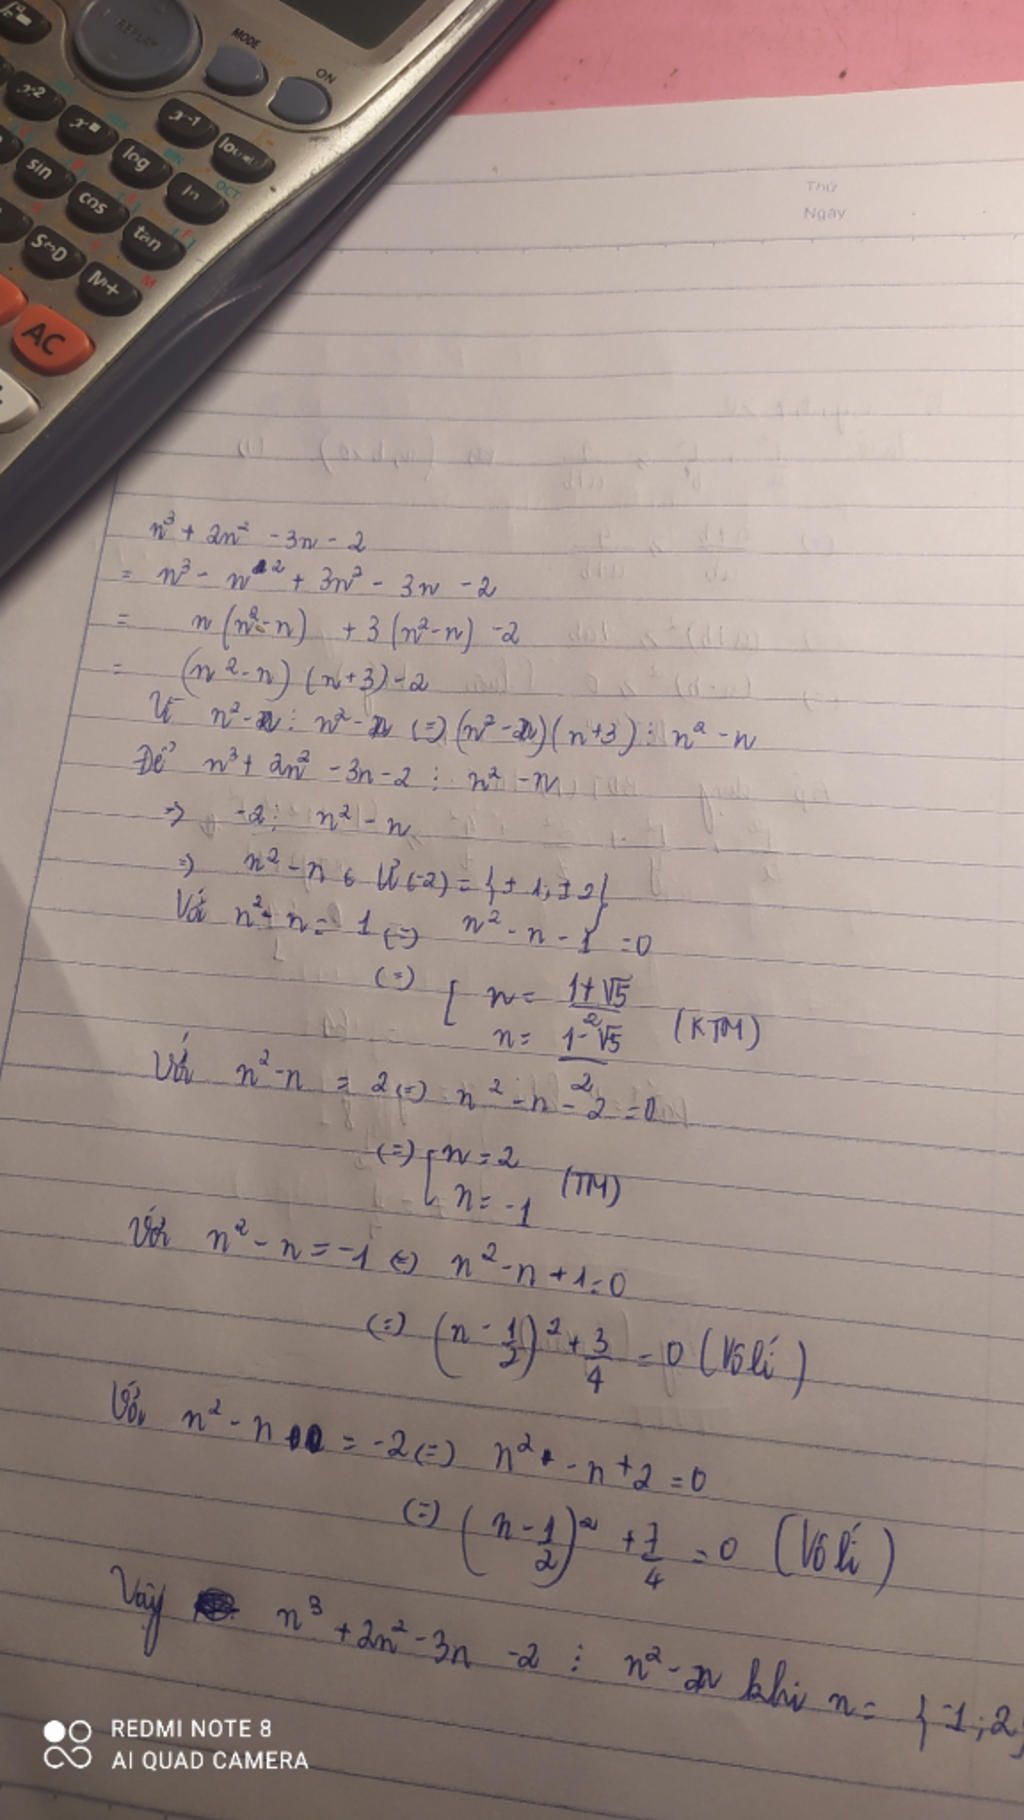 REPLAY
MODE
ON
x2
x■
x-1
log
sin
log
ln
OCT
BIN
cos
tan
S⇔D
M+
M
AC
Thứ
Ngày
n³ + 2n² - 3n - 2
= n³ - n² + 3n² - 3n - 2
= n(n² - n) + 3(n² - n) - 2
= (n² - n)(n + 3) - 2
Vì n² - n ⋮ n² - n (=) (n² - n)(n + 3) ⋮ n² - n
Để n³ + 2n² - 3n - 2 ⋮ n² - n
=> -2 ⋮ n² - n
=> n² - n ∈ Ư(-2) = {±1; ±2}
Với n² - n = 1 (=) n² - n - 1 = 0
(=) [ n = (1+√5)/2
n = (1-√5)/2 (KTM)
Với n² - n = 2 (=) n² - n - 2 = 0
(=) [ n = 2
n = -1 (TM)
Với n² - n = -1 (=) n² - n + 1 = 0
(=) (n - 1/2)² + 3/4 = 0 (Vô lí)
Với n² - n = -2 (=) n² - n + 2 = 0
(=) (n - 1/2)² + 7/4 = 0 (Vô lí)
Vậy n³ + 2n² - 3n - 2 ⋮ n² - n khi n = {-1; 2}
REDMI NOTE 8
AI QUAD CAMERA